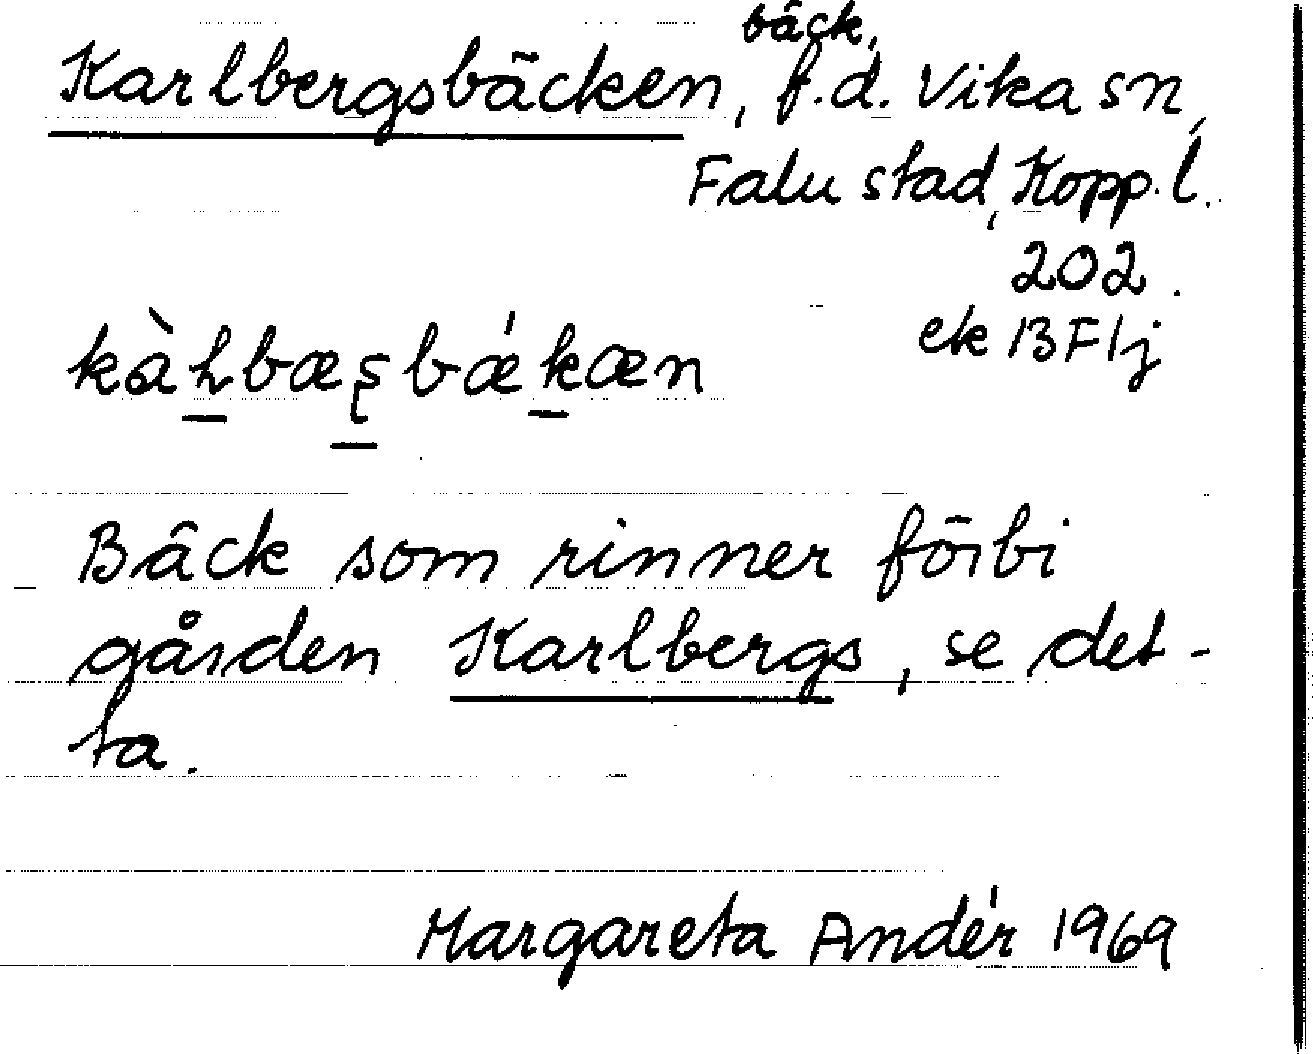 Karlbergsbäcken, bäck, f.d. Vika sn,
Falu stad, Kopp. l.
202.
ek 13F1j
kàḻbæʂbǽkæn
Bäck som rinner förbi
gården Karlbergs, se det-
ta.
Margareta Andér 1969